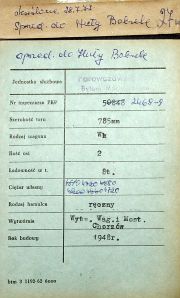 określone 28.7.77
Sprzed. do Huty Bobrek
sprzed. do Huty Bobrek
Jednostka służbowa
Nr inwentarza PKP 2468-9
Szerokość toru 785mm
Rodzaj wagonu Wk
Ilość osi 2
Ładowność w t. St.
Ciężar własny
Rodzaj hamulca ręczny
Wytwórnia Wytw. Wag. i Most. Chorzów
Rok budowy 1948r.